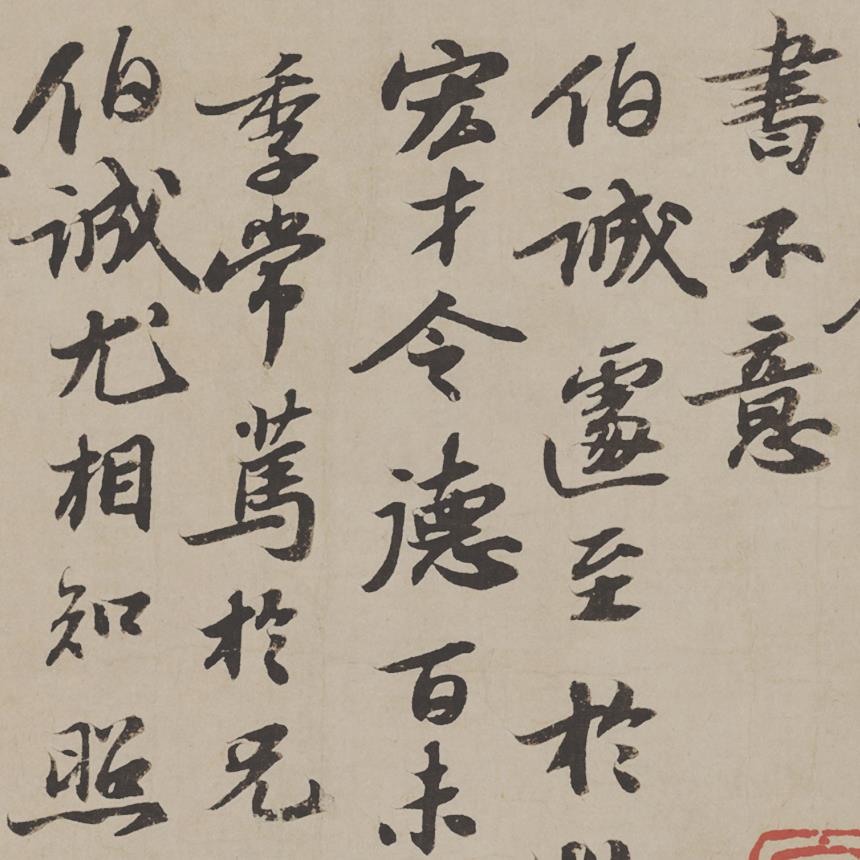 書不意
伯誠遽至於
宏才令德百未
季常篤於兄
伯誠尤相知照